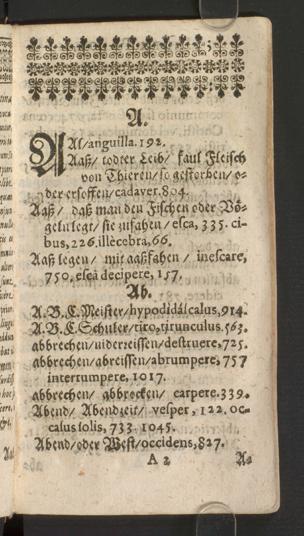 A.
AAl/anguilla.192.
Aaß/ todter Leib/ faul Fleisch
von Thieren/ so gestorben/ o-
der ersoffen/cadaver.804.
Aaß/ daß man den Fischen oder Vö-
geln legt/ sie zufahen/ esca, 335. ci-
bus,226.illecebra,66.
Aaß legen/ mit aaß fahen/ inescare,
750. escâ decipere, 157.
Ab.
A.B.C.Meister/hypodidascalus,914.
A.B.C.Schuler/tiro,tirunculus.563.
abbrechen/niderreissen/destruere,725.
abbrechen/abreissen/abrumpere,757
interrumpere, 1017.
abbrechen/ abbrocken/ carpere.339.
Abend/ Abendzeit/ vesper, 122.oc-
casus solis, 733. 1045.
Abend/oder West/occidens,827.
A 2 A-